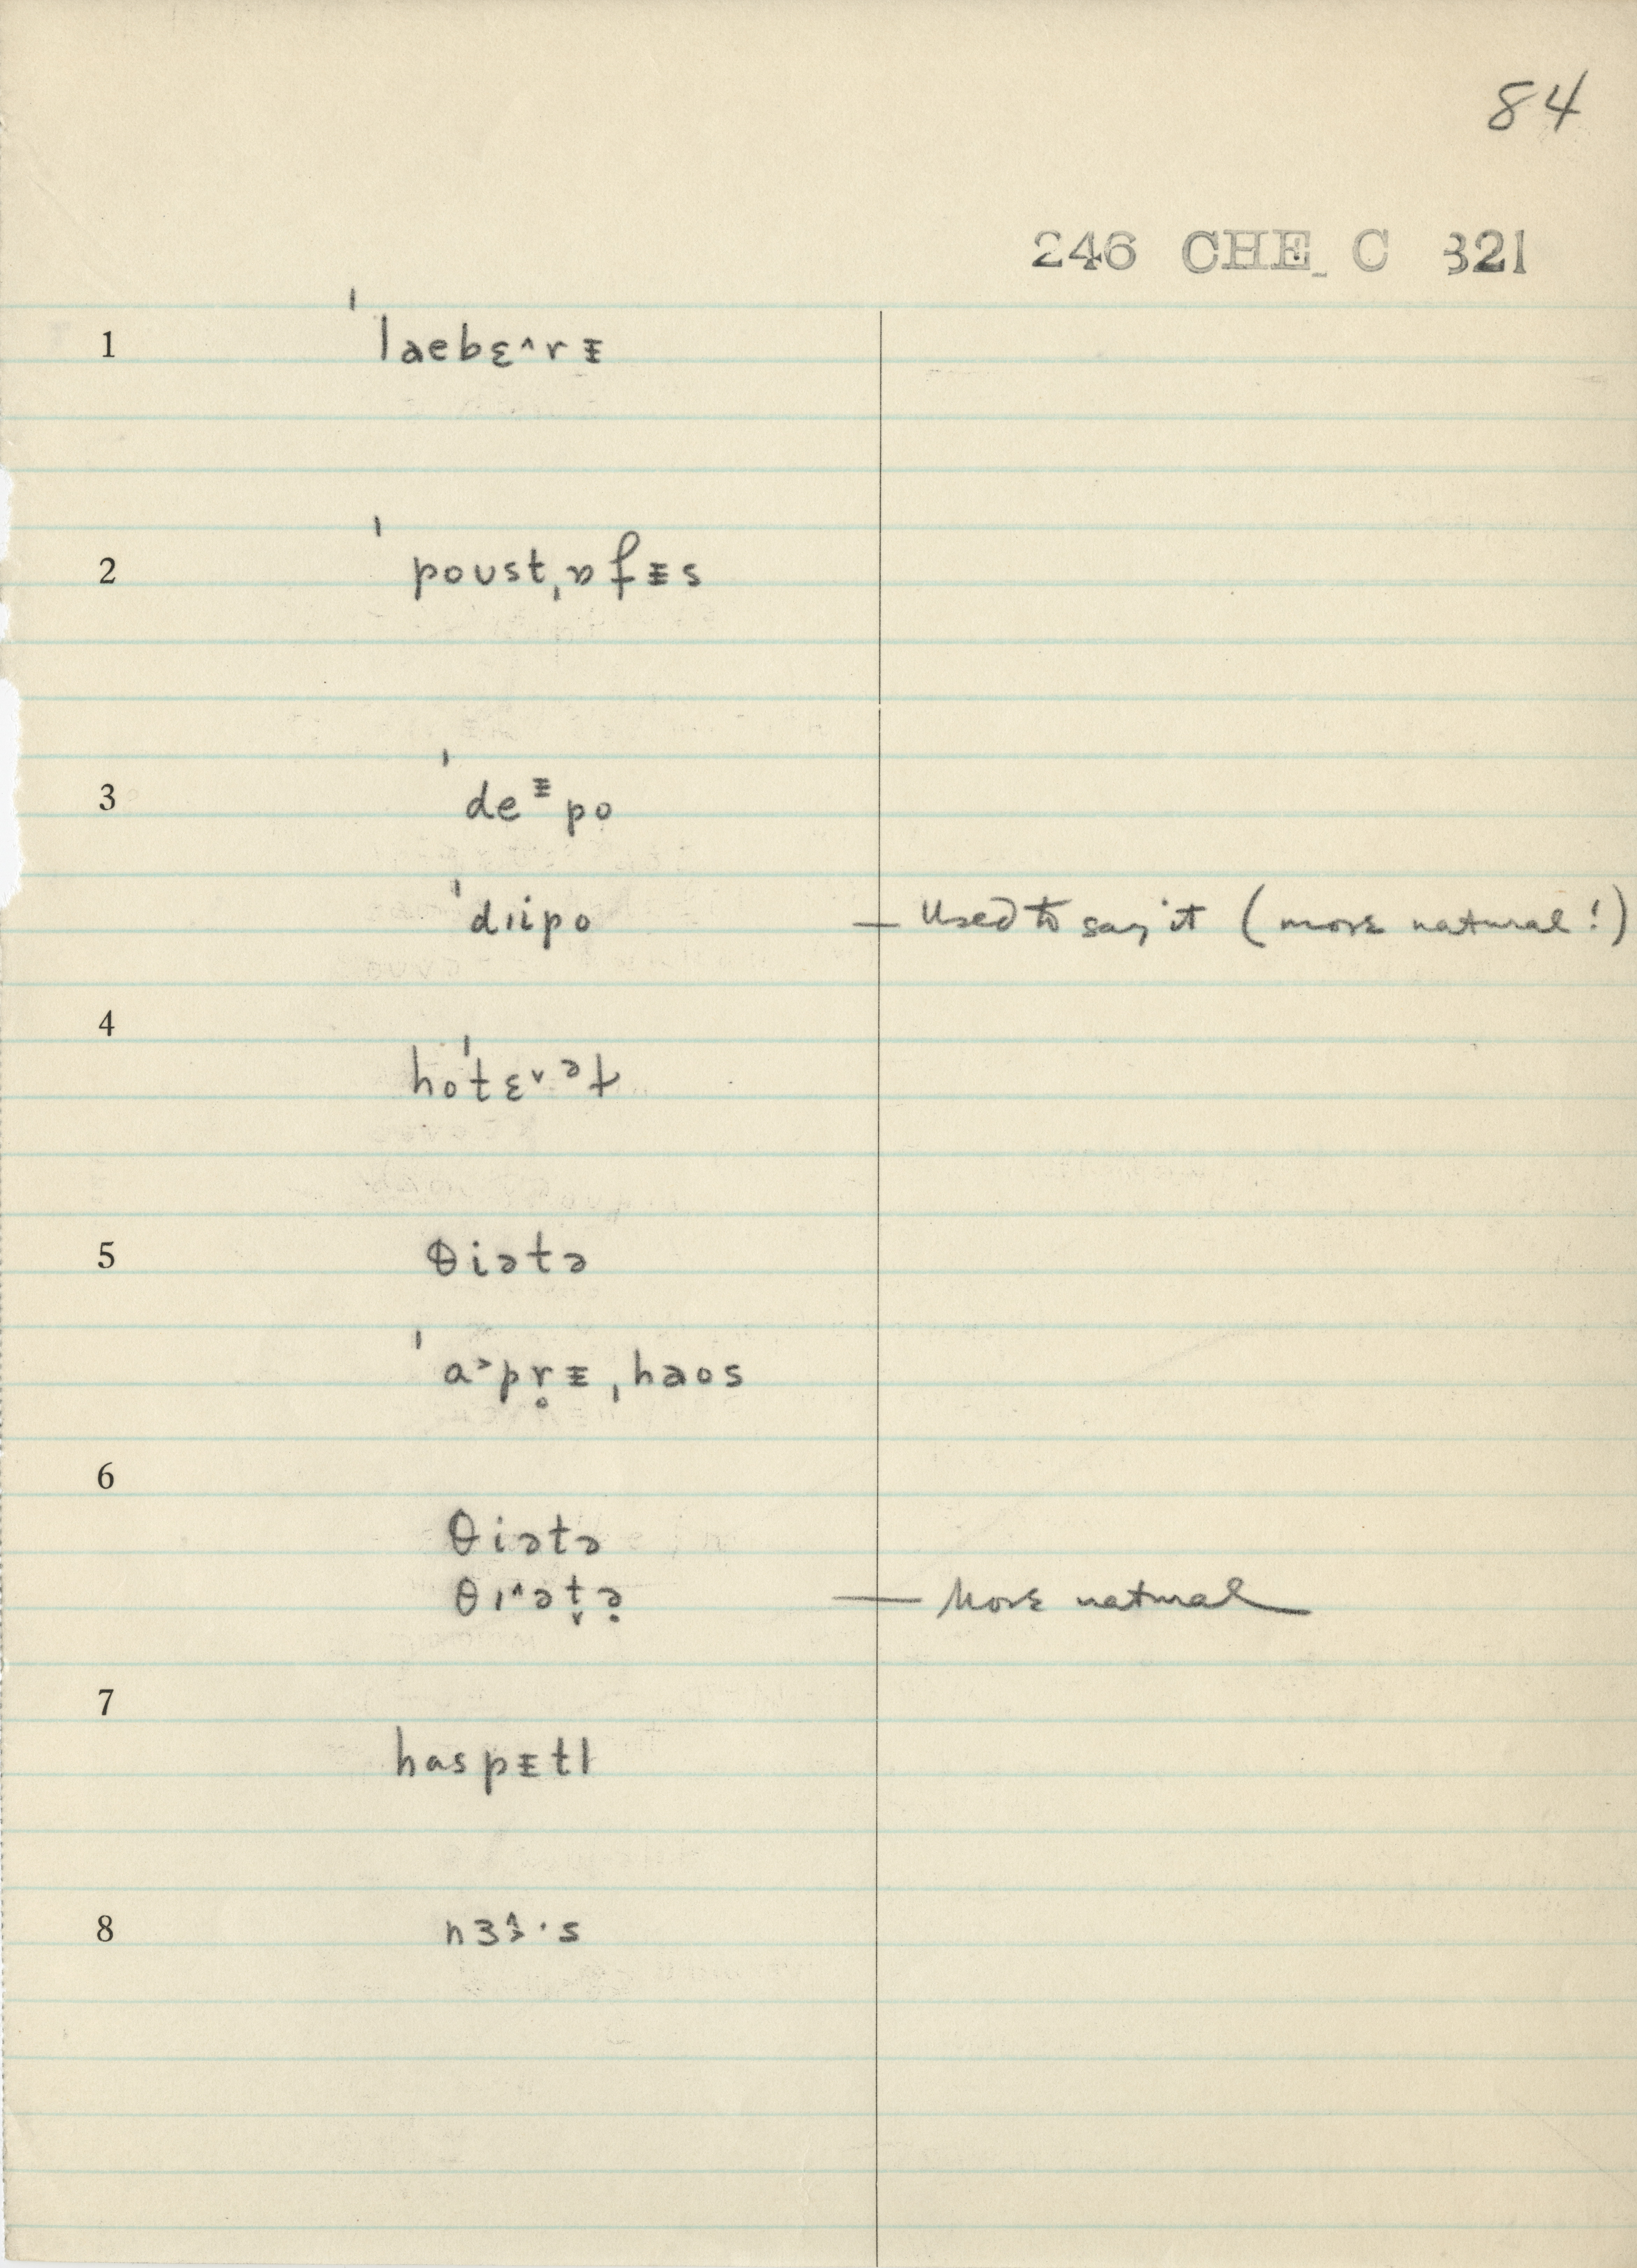 84
246 CHE C 321
1 ˈlaebɛ^rᵻ
2 ˈpoʊstˌɒfᵻs
3 ˈdeᵻpo
ˈdɪipo — Used to say it (more natural!)
4 hoˈtɛ˅ᵊɫ
5 θiətə
ˈa˃pr̥ᵻˌhaos
6 θiətə
θɪ^ət̬ə̣ — More natural
7 haspᵻtl
8 nɜɝ^·s